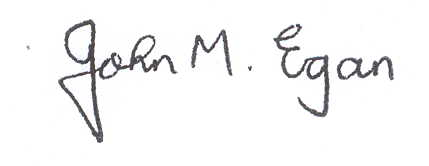 John M. Egan